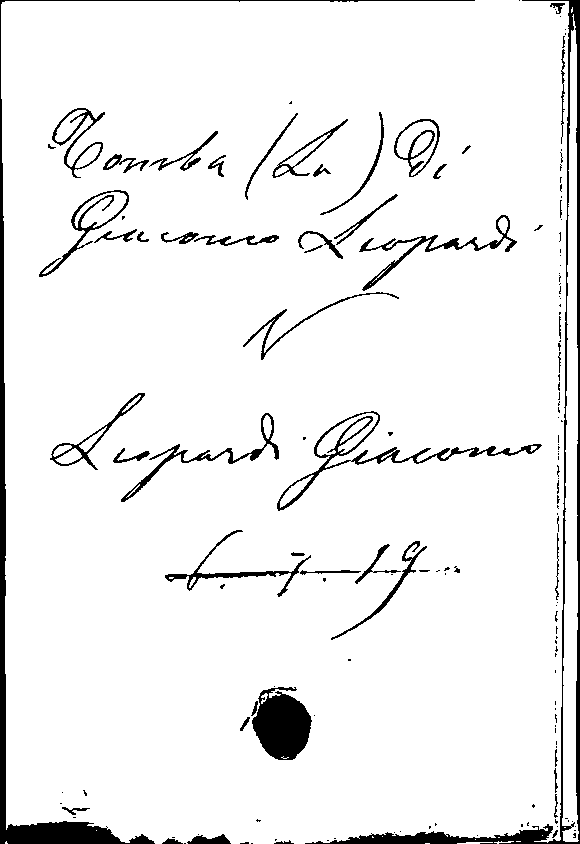 Tomba (La) Di
Giacomo Leopardi
V
Leopardi Giacomo
6. 7. 19